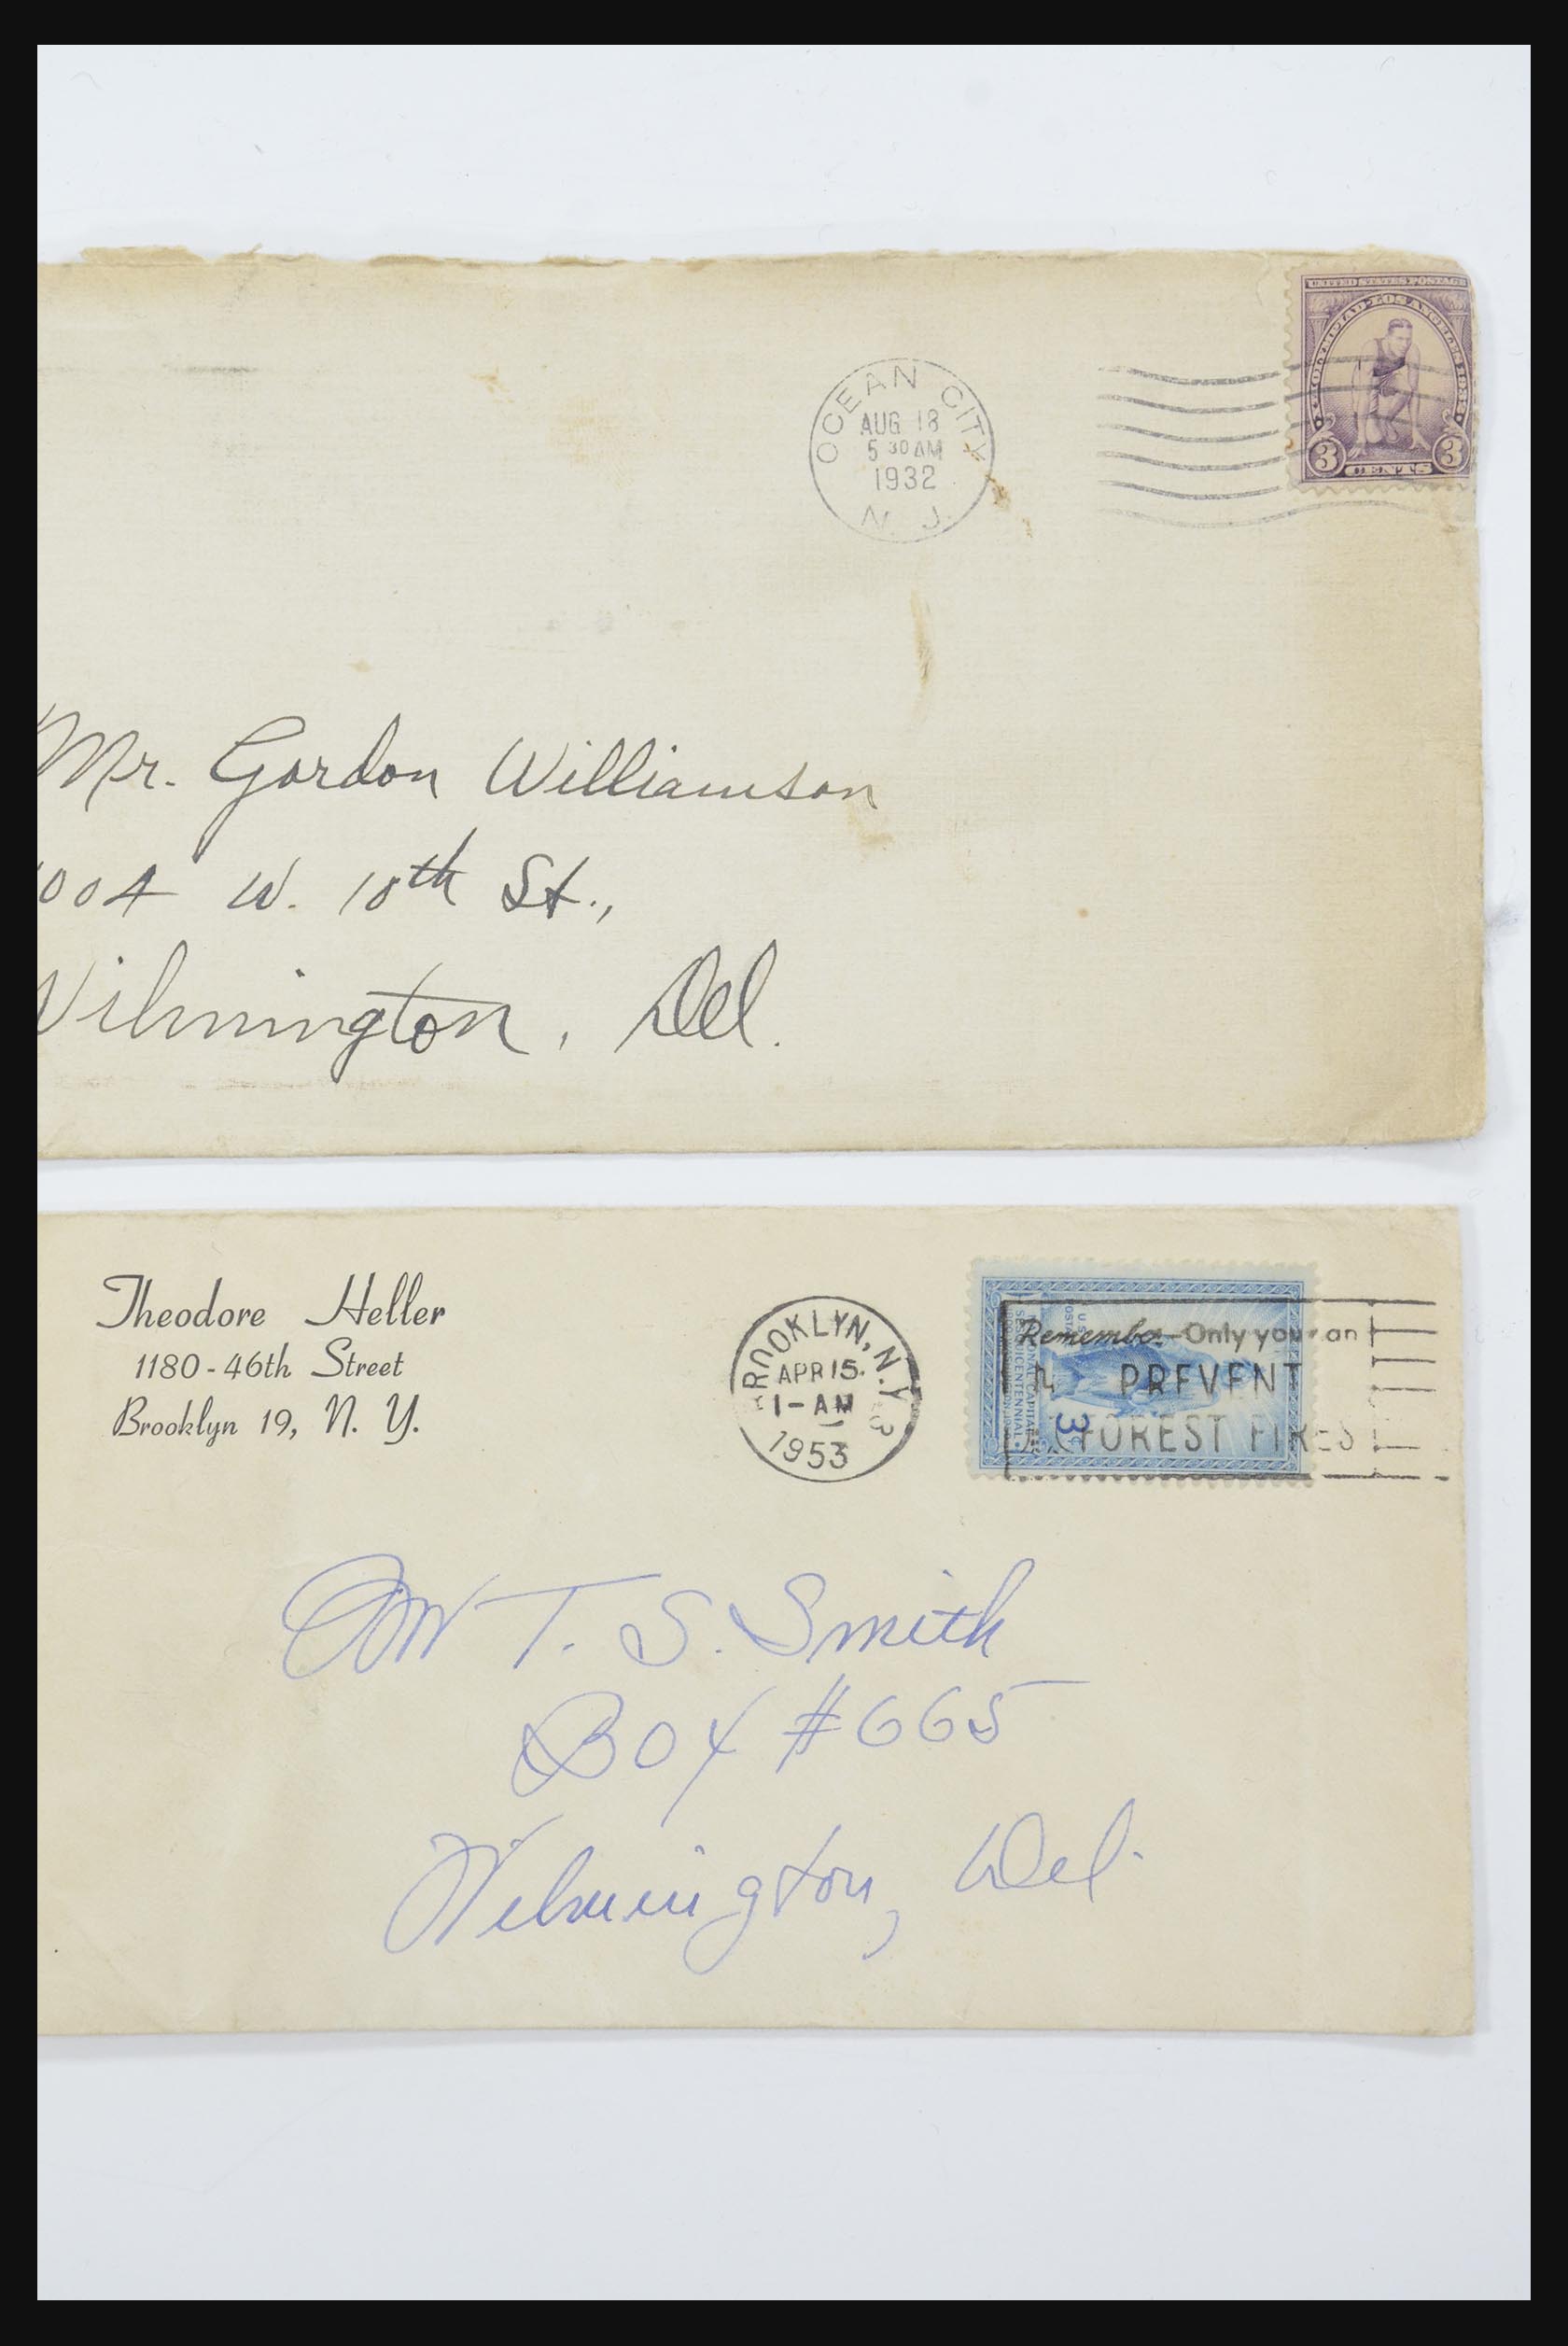 UNITED STATES POSTAGE
X OLYMPIAD LOS ANGELES 1932
3 CENTS 3
OCEAN CITY
AUG 18
5 30 AM
1932
N. J.
Mr. Gordon Williamson
004 W. 10th St.,
Wilmington, Del.
Theodore Heller
1180-46th Street
Brooklyn 19, N. Y.
BROOKLYN, N.Y.
APR 15
1-AM
1953
Remember-Only you can
PREVENT
FOREST FIRES
NATIONAL CAPITAL
SESQUICENTENNIAL
3¢
Mr T. S. Smith
Box #665
Wilmington, Del.